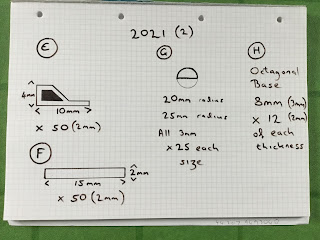 2021 (2)
E
4mm
10mm
x 50 (2mm)
F
2mm
15mm
x 50 (2mm)
G
20mm radius
25mm radius
All 3mm
x 25 each
size
H
Octagonal
Base
8mm (3mm)
x 12 (2mm)
of each
thickness